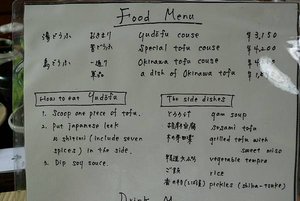 Food Menu
湯どうふ おきまり Yudōfu couse ¥3,150
昔どうふ Special tofu couse ¥4,200
島どうふ 一通り Okinawa tofu couse
単品 a dish of Okinawa tofu
How to eat Yudōfu
1. Scoop one piece of tofu.
2. Put Japanese leek
& shichimi (include seven
spices) in the side.
3. Dip soy souce.
The side dishes
とろろ汁 yam soup
胡麻豆腐 sesami tofu
木の芽田楽 grilled tofu with
sweet miso
野菜天ぷら vegetable tempra
ご飯 rice
香の物 pickles (shiba-tsuke)
Drink M